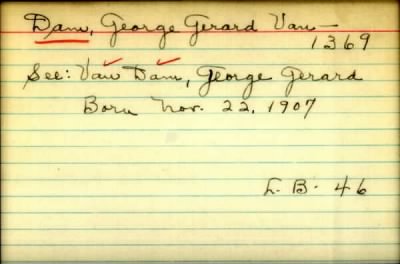 Dam, George Gerard Van —
1369
See: Van Dam, George Gerard
Born Nov. 22, 1907
L. B. 46